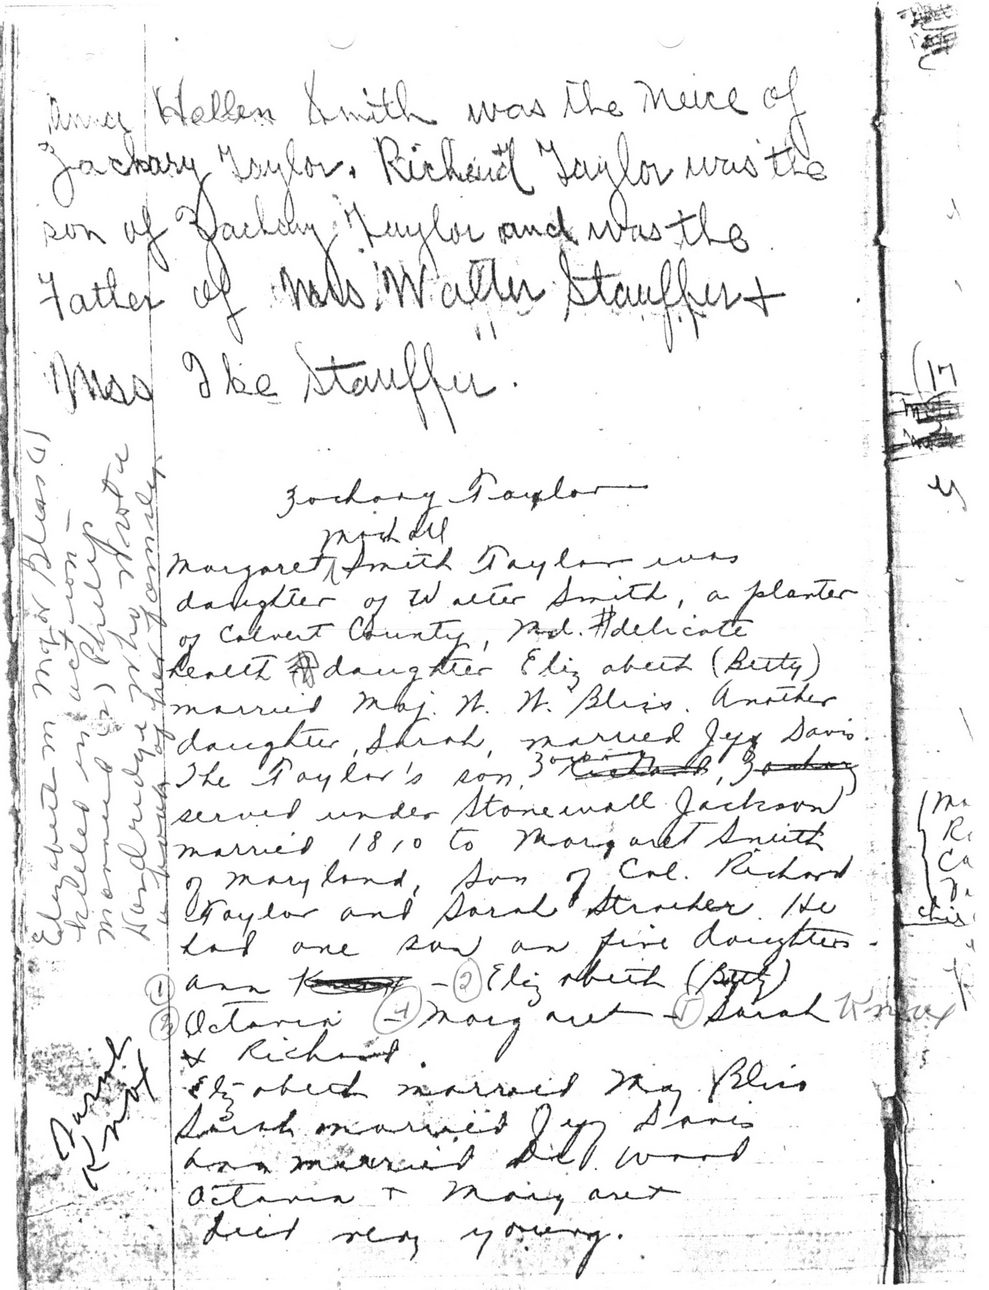 Anna Hellen Smith was the Neice of
Zachary Taylor. Richard Taylor was the
son of Zachary Taylor and was the
Father of Mrs. Walter Stauffer +
Miss Ike Stauffer.
Zachary Taylor
Mackall
Margaret Smith Taylor was
daughter of Walter Smith, a planter
of Calvert County, Md. delicate
health daughter Elizabeth (Betty)
married Maj. W. W. Bliss. Another
daughter, Sarah, married Jeff Davis.
The Taylor's son, Richard, Zachary
served under Stonewall Jackson
married 1810 to Margaret Smith
of Maryland, Son of Col. Richard
Taylor and Sarah Strother. He
had one son an five daughters.
Ann - 2 Elizabeth (Betty)
3 Octavia - 4 Margaret - 5 Sarah Knox
+ Richard.
Elizabeth married Maj Bliss
Sarah married Jeff Davis
Ann married Dr. Wood
Octavia + Margaret
died very young.
Elizabeth m Major Bliss (1)
killed in action -
married (2) Philip
Handridge who wrote
a book of her family.
Sarah
Knox
(17
y
Ma
Ca
chis